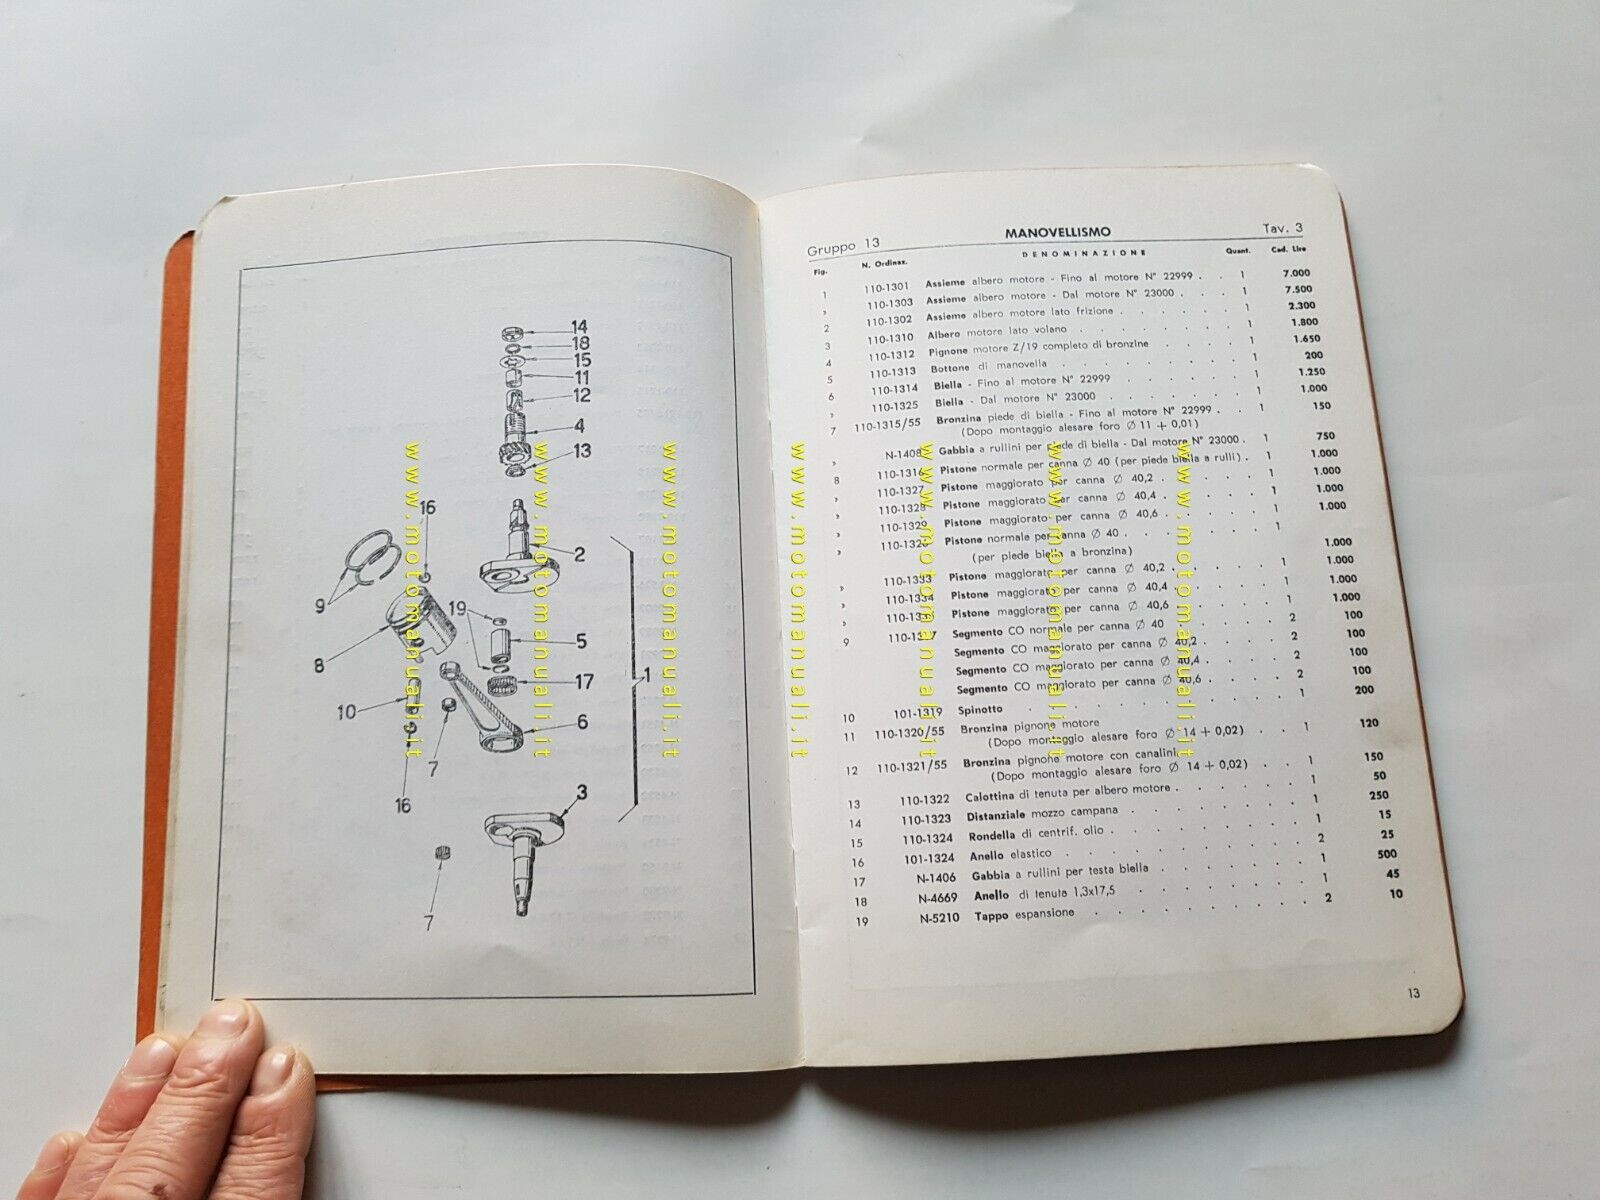 14
18
15
11
12
4
13
16
2
9
19
5
8
17
1
10
6
7
16
3
7
Gruppo 13 MANOVELLISMO Tav. 3
Fig. N. Ordinaz. DENOMINAZIONE Quant. Cad. Lire
1 110-1301 Assieme albero motore - Fino al motore N° 22999 . . 1 7.000
» 110-1303 Assieme albero motore - Dal motore N° 23000 . . . 1 7.500
2 110-1302 Assieme albero motore lato frizione . . . . . . 1 2.300
3 110-1310 Albero motore lato volano . . . . . . . . 1 1.800
4 110-1312 Pignone motore Z/19 completo di bronzine . . . . 1 1.650
5 110-1313 Bottone di manovella . . . . . . . . . 1 200
6 110-1314 Biella - Fino al motore N° 22999 . . . . . . 1 1.250
» 110-1325 Biella - Dal motore N° 23000 . . . . . . . 1 1.000
7 110-1315/55 Bronzina piede di biella - Fino al motore N° 22999 . . 1 150
(Dopo montaggio alesare foro Ø 11 + 0,01)
» N-1408 Gabbia a rullini per piede di biella - Dal motore N° 23000 . 1 750
8 110-1316 Pistone normale per canna Ø 40 (per piede biella a rulli) . 1 1.000
» 110-1327 Pistone maggiorato per canna Ø 40,2 . . . . . 1 1.000
» 110-1328 Pistone maggiorato per canna Ø 40,4 . . . . . 1 1.000
» 110-1329 Pistone maggiorato per canna Ø 40,6 . . . . . 1 1.000
» Pistone normale per canna Ø 40 . . . . . . 1
(per piede biella a bronzina) 1.000
» 110-1333 Pistone maggiorato per canna Ø 40,2 . . . . . 1 1.000
» 110-1334 Pistone maggiorato per canna Ø 40,4 . . . . . 1 1.000
» Pistone maggiorato per canna Ø 40,6 . . . . . 1 1.000
9 Segmento CO normale per canna Ø 40 . . . . . 2 100
Segmento CO maggiorato per canna Ø 40,2 . . . . 2 100
Segmento CO maggiorato per canna Ø 40,4 . . . . 2 100
Segmento CO maggiorato per canna Ø 40,6 . . . . 2 100
10 101-1319 Spinotto . . . . . . . . . . . 1 200
11 110-1320/55 Bronzina pignone motore
(Dopo montaggio alesare foro Ø 14 + 0,02) . . 1 120
12 110-1321/55 Bronzina pignone motore con canalini
(Dopo montaggio alesare foro Ø 14 + 0,02) . . 1 150
13 110-1322 Calottina di tenuta per albero motore . . . . . 1 50
14 110-1323 Distanziale mozzo campana . . . . . . . 1 250
15 110-1324 Rondella di centrif. olio . . . . . . . . 1 15
16 101-1324 Anello elastico . . . . . . . . . . 2 25
17 N-1406 Gabbia a rullini per testa biella . . . . . . 1 500
18 N-4669 Anello di tenuta 1,3x17,5 . . . . . . . 1 45
19 N-5210 Tappo espansione . . . . . . . . . 2 10
13
www.motomanuali.it
www.motomanuali.it
www.motomanuali.it
www.motomanuali.it
www.motomanuali.it
www.motomanuali.it
www.motomanuali.it